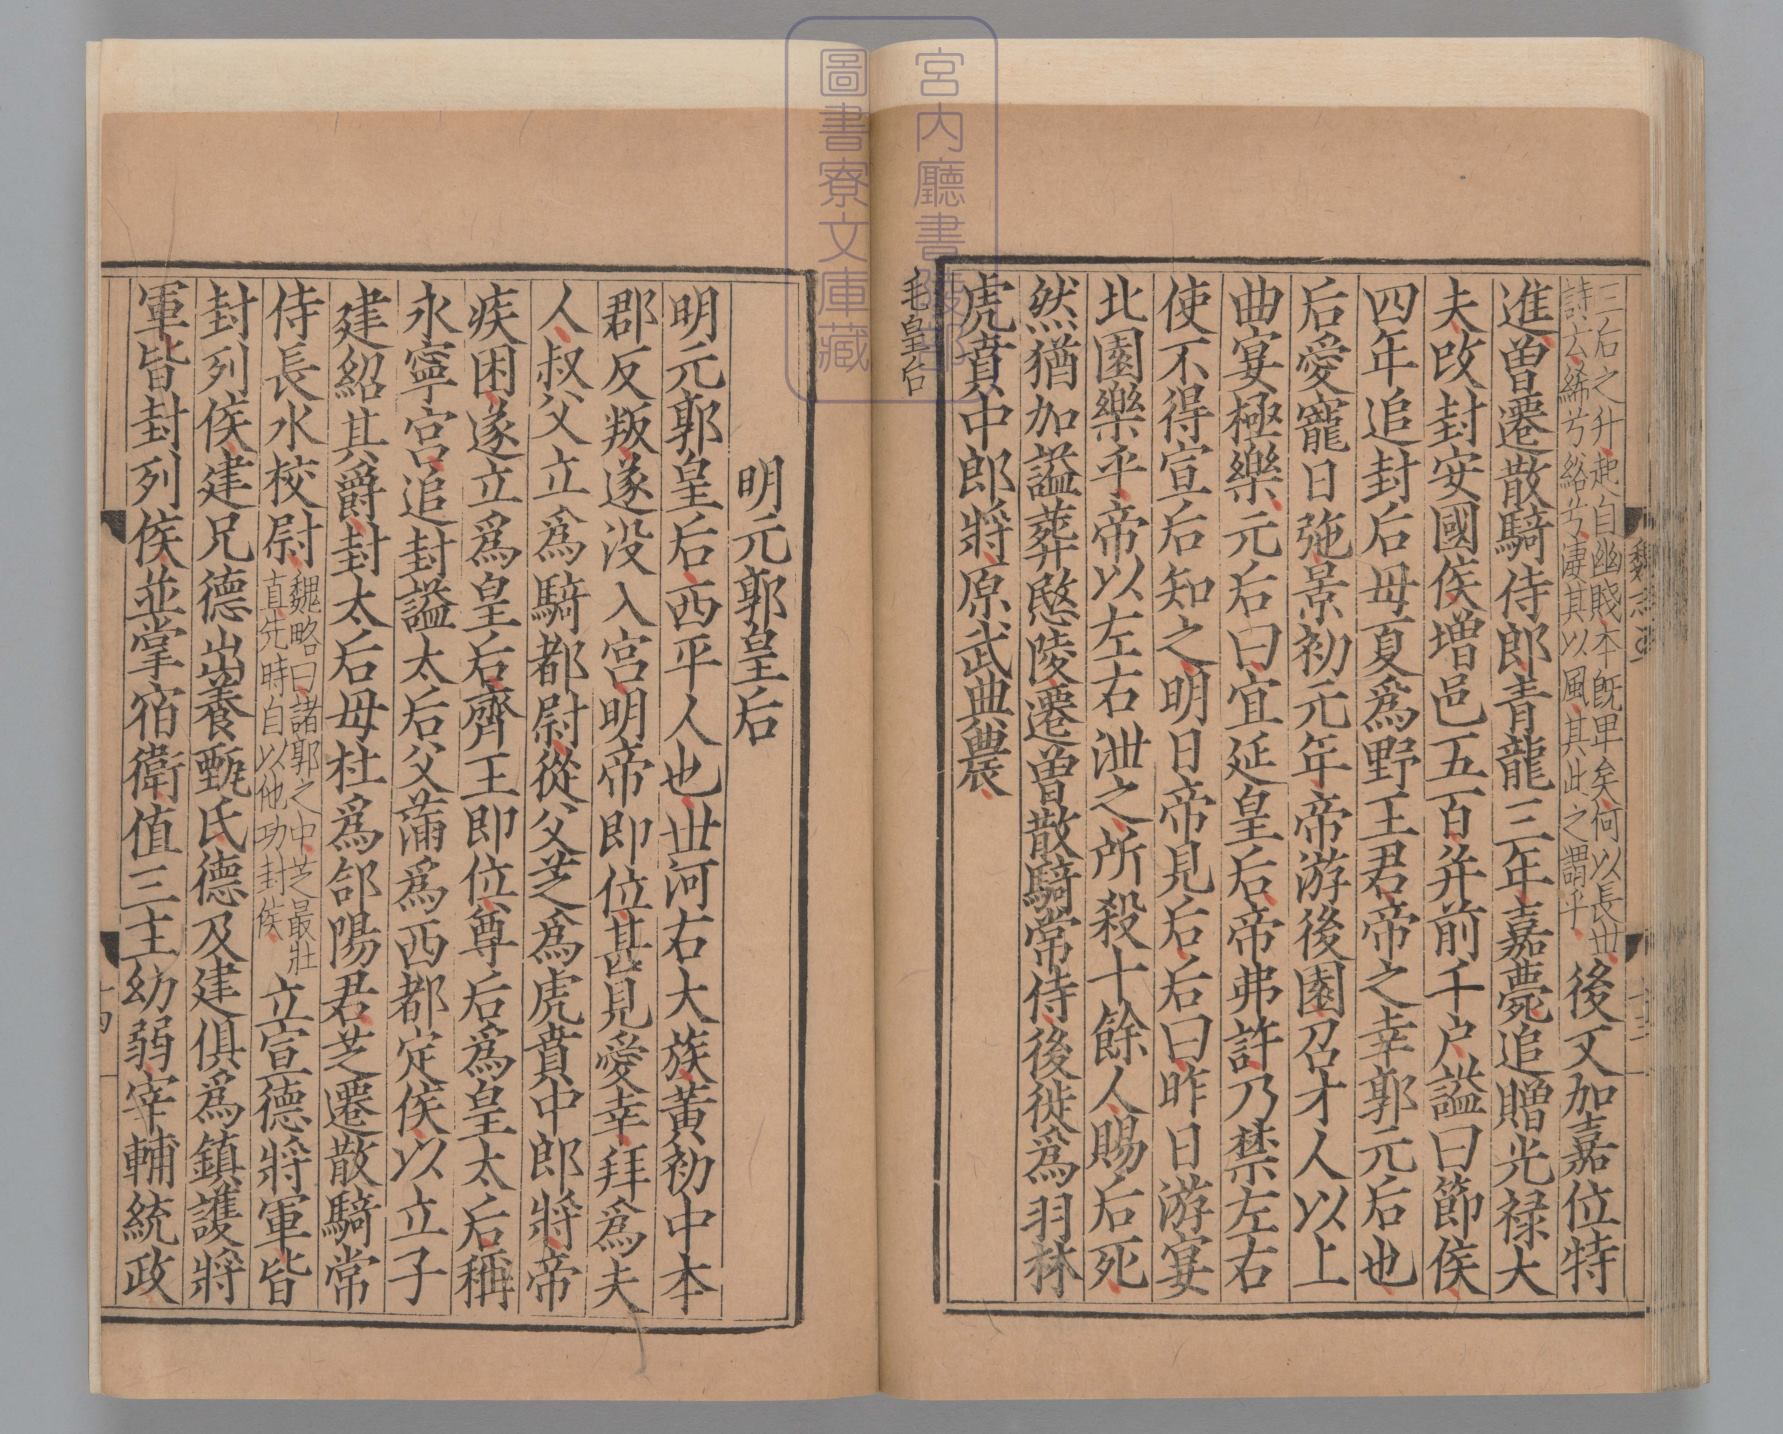 三后之升起自幽賤本旣卑矣何以長世
詩云絺兮綌兮淒其以風其此之謂乎
後又加嘉位特
進曾遷散騎侍郎青龍三年嘉薨追贈光禄大
夫改封安國侯增邑五百并前千户謚曰節侯
四年追封后母夏爲野王君帝之幸郭元后也
后愛寵日弛景初元年帝游後園召才人以上
曲宴極樂元后曰宜延皇后帝弗許乃禁左右
使不得宣后知之明日帝見后后曰昨日游宴
北園樂乎帝以左右泄之所殺十餘人賜后死
然猶加謚葬愍陵遷曾散騎常侍後徙爲羽林
虎賁中郎將原武典農
毛皇后
明元郭皇后
明元郭皇后西平人也丗河右大族黃初中本
郡反叛遂没入宮明帝即位甚見愛幸拜爲夫
人叔父立爲騎都尉從父芝爲虎賁中郎將帝
疾困遂立爲皇后齊王即位尊后爲皇太后稱
永寧宮追封謚太后父蒲爲西都定侯以立子
建紹其爵封太后母杜爲郃陽君芝遷散騎常
侍長水校尉
魏略曰諸郭之中芝最壯
直先時自以他功封侯
立宣德將軍皆
封列侯建兄德出養甄氏德及建俱爲鎮護將
軍皆封列侯並掌宿衛值三主幼弱宰輔統政
宮内廳書陵部
圖書寮文庫藏